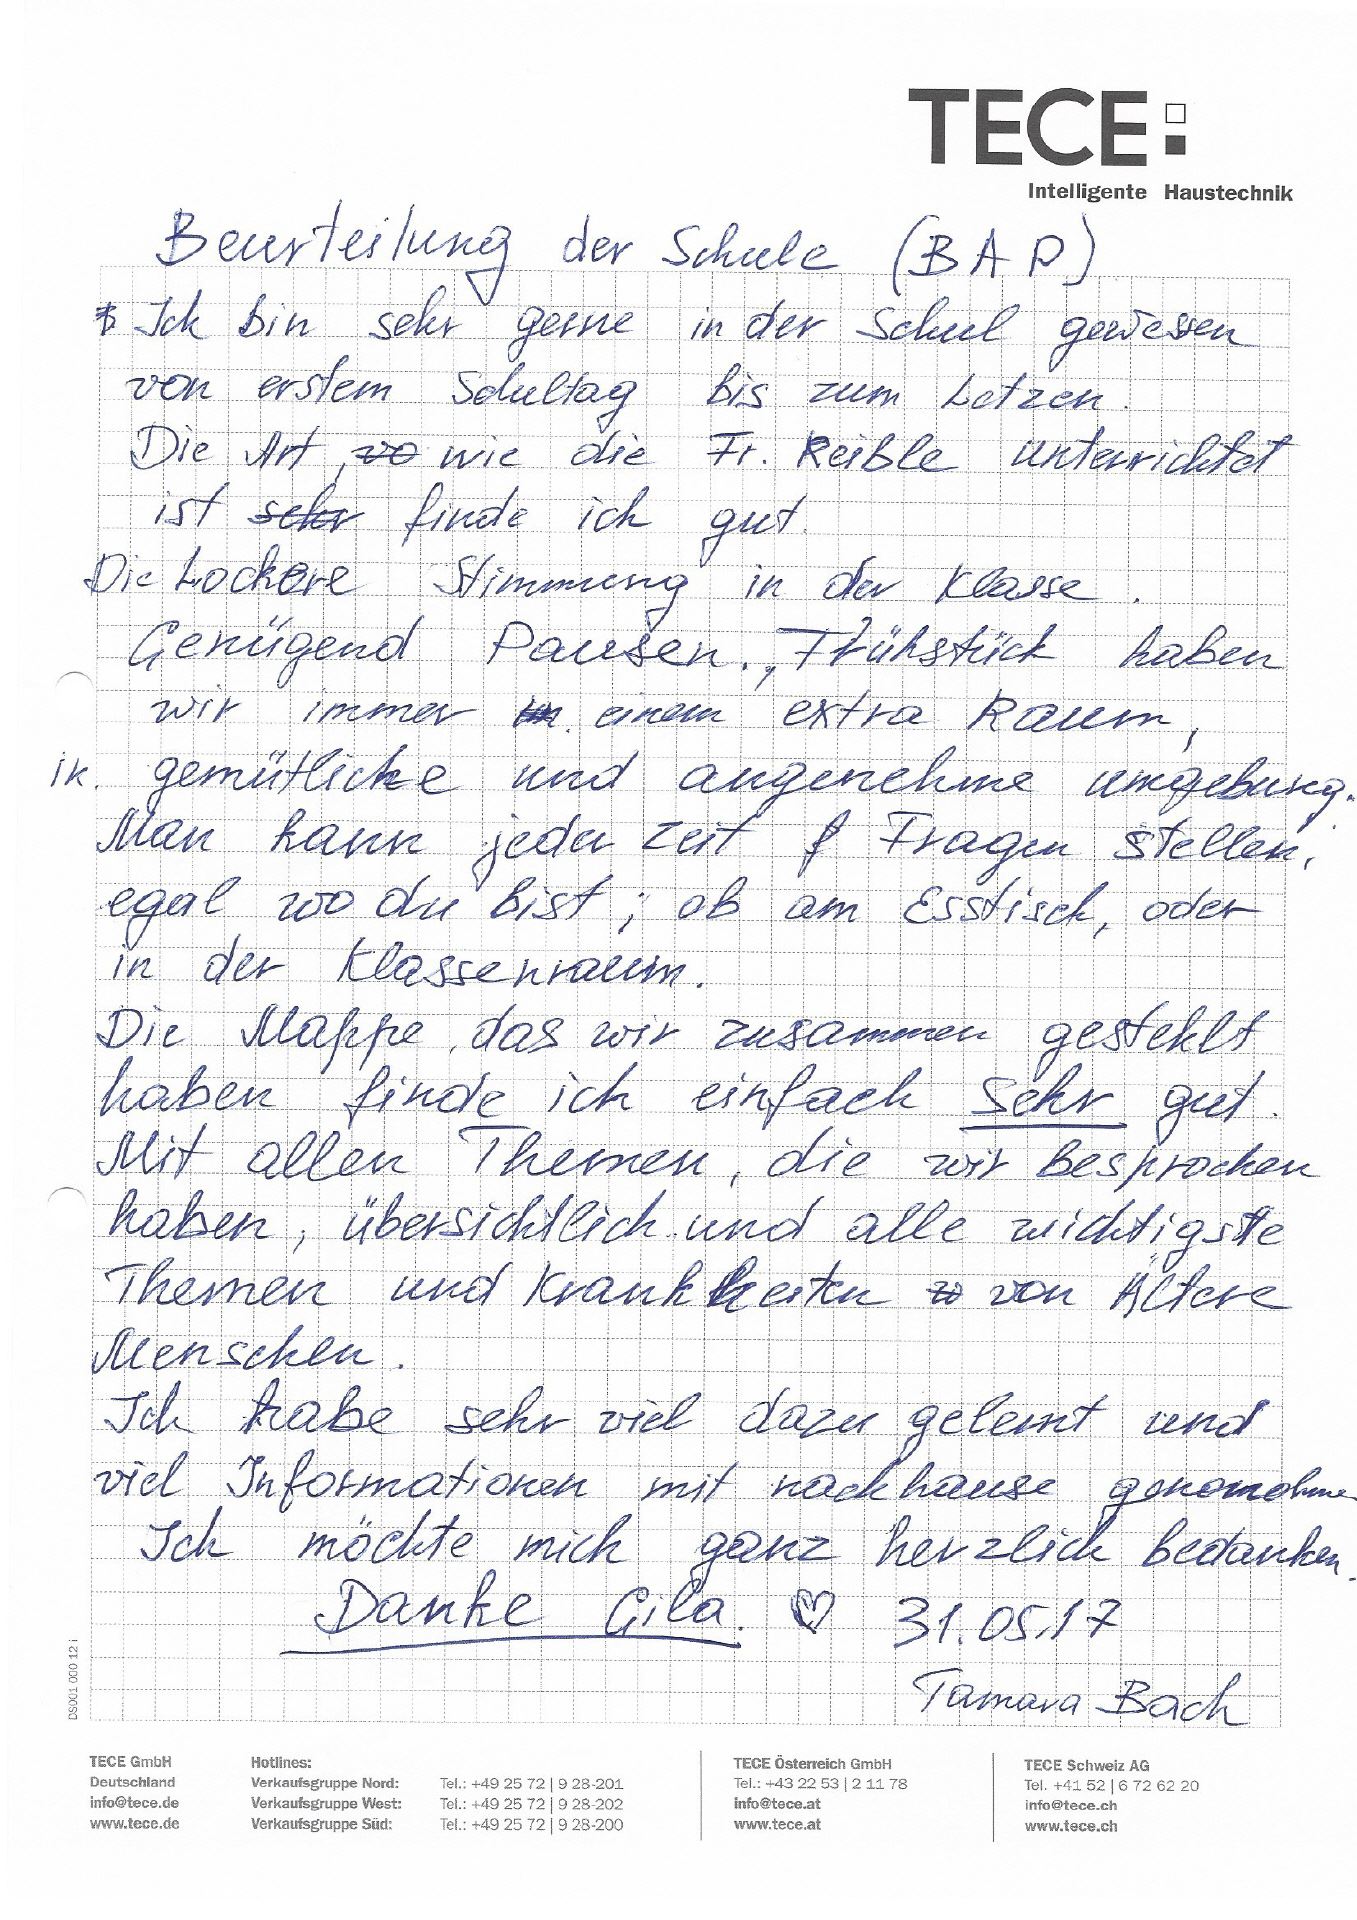 TECE:
Intelligente Haustechnik
Beurteilung der Schule (BAP)
Ich bin sehr gerne in der Schul gewessen
von erstem Schultag bis zum Letzen.
Die Art, wie die Fr. Reible unterrichtet
ist finde ich gut.
Die Lockere Stimmung in der Klasse.
Genügend Pausen., Frühstück haben
wir immer einem extra Raum,
in. gemütliche und angenehme umgebung.
Man kann jeder Zeit Fragen stellen,
egal wo du bist; ob am Esstisch, oder
in der Klassenraum.
Die Mappe, das wir zusammen gestehlt
haben finde ich einfach sehr gut.
Mit allen Themen, die wir besprochen
haben, übersichtlich und alle wichtigste
Themen und Krankheiten von Ältere
Menschen.
Ich habe sehr viel dazu gelernt und
viel Informationen mit nachhause genomohme
Ich möchte mich ganz herzlich bedanken.
Danke Gila. ♡ 31.05.17
Tamara Bach
DS001 000 12 i
TECE GmbH
Deutschland
info@tece.de
www.tece.de
Hotlines:
Verkaufsgruppe Nord: Tel.: +49 25 72 | 9 28-201
Verkaufsgruppe West: Tel.: +49 25 72 | 9 28-202
Verkaufsgruppe Süd: Tel.: +49 25 72 | 9 28-200
TECE Österreich GmbH
Tel.: +43 22 53 | 2 11 78
info@tece.at
www.tece.at
TECE Schweiz AG
Tel. +41 52 | 6 72 62 20
info@tece.ch
www.tece.ch